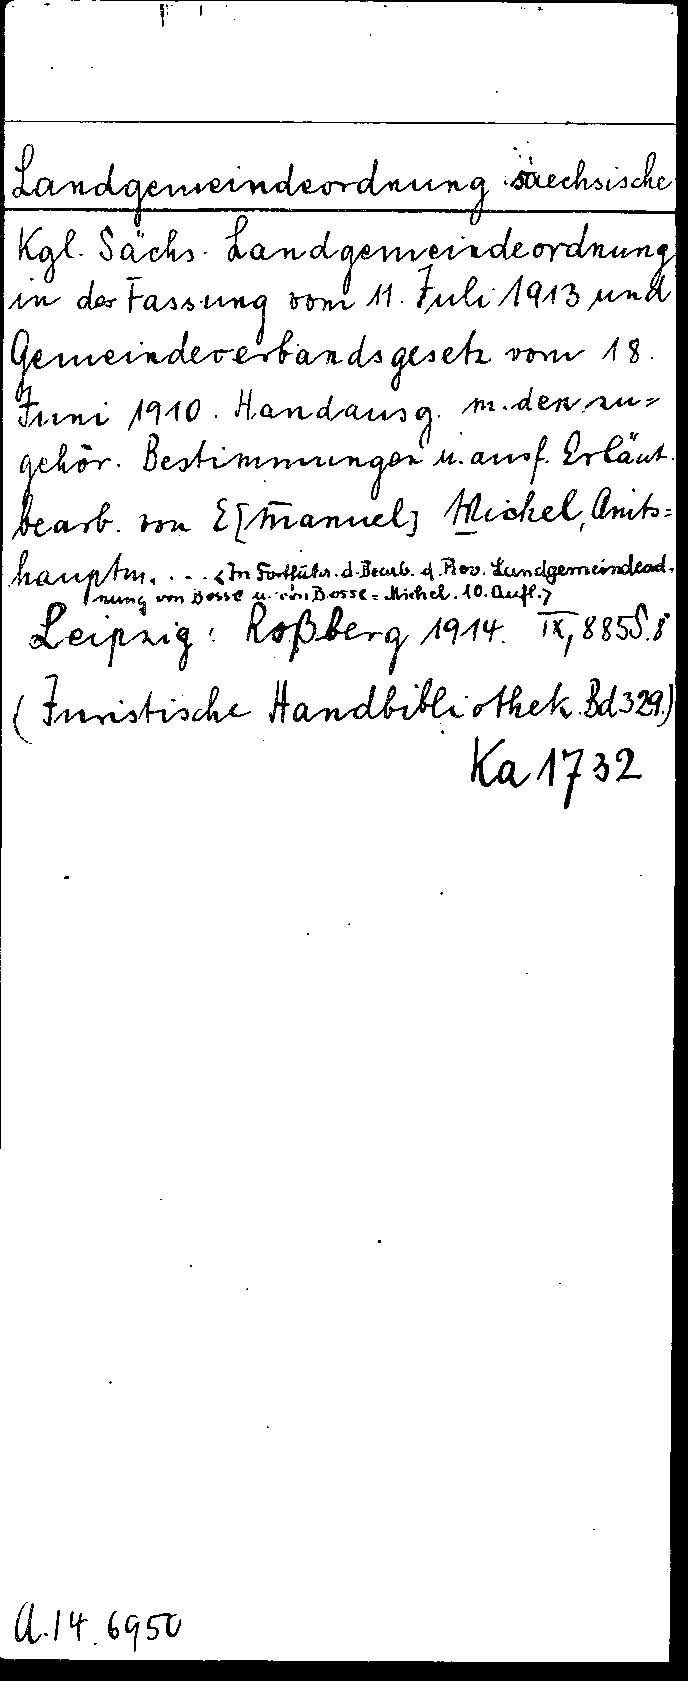 Landgemeindeordnung saechsische
Kgl. Sächs. Landgemeindeordnung
in der Fassung vom 11. Juli 1913 und
Gemeindeverbandsgesetz vom 18.
Juni 1910. Handausg. m. den zu=
gehör. Bestimmungen u. ausf. Erläut.
bearb. von E[manuel] Michel, Amts=
hauptm. ... <In Fortführ. d. Bearb. d. Rev. Landgemeindeord=
nung von Bosse u. von Bosse=Michel. 10. Aufl.>
Leipzig: Roßberg 1914. IX, 885 S. 8
(Juristische Handbibliothek. Bd 329.)
Ka 1732
A. 14. 6950